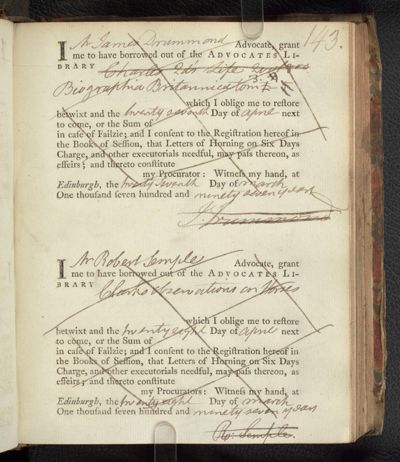 143.
I Mr James Drummond Advocate, grant
me to have borrowed out of the ADVOCATES LI-
BRARY Charles 2ds Life
Biographia Britannica tom
which I oblige me to reſtore
betwixt and the twenty seventh Day of april next
to come, or the Sum of
in caſe of Failzie; and I conſent to the Regiſtration hereof in
the Books of Seſſion, that Letters of Horning on Six Days
Charge, and other executorials needful, may paſs thereon, as
effeirs; and thereto conſtitute
my Procurator: Witneſs my hand, at
Edinburgh, the twenty seventh Day of march
One thouſand ſeven hundred and ninety seven years
J. Drummond
I Mr Robert Semple Advocate, grant
me to have borrowed out of the ADVOCATES LI-
BRARY Clarks observations on Horses
which I oblige me to reſtore
betwixt and the twenty eight Day of april next
to come, or the Sum of
in caſe of Failzie; and I conſent to the Regiſtration hereof in
the Books of Seſſion, that Letters of Horning on Six Days
Charge, and other executorials needful, may paſs thereon, as
effeirs; and thereto conſtitute
my Procurators: Witneſs my hand, at
Edinburgh, the twenty eight Day of march
One thouſand ſeven hundred and ninety seven years
Ro: Semple.